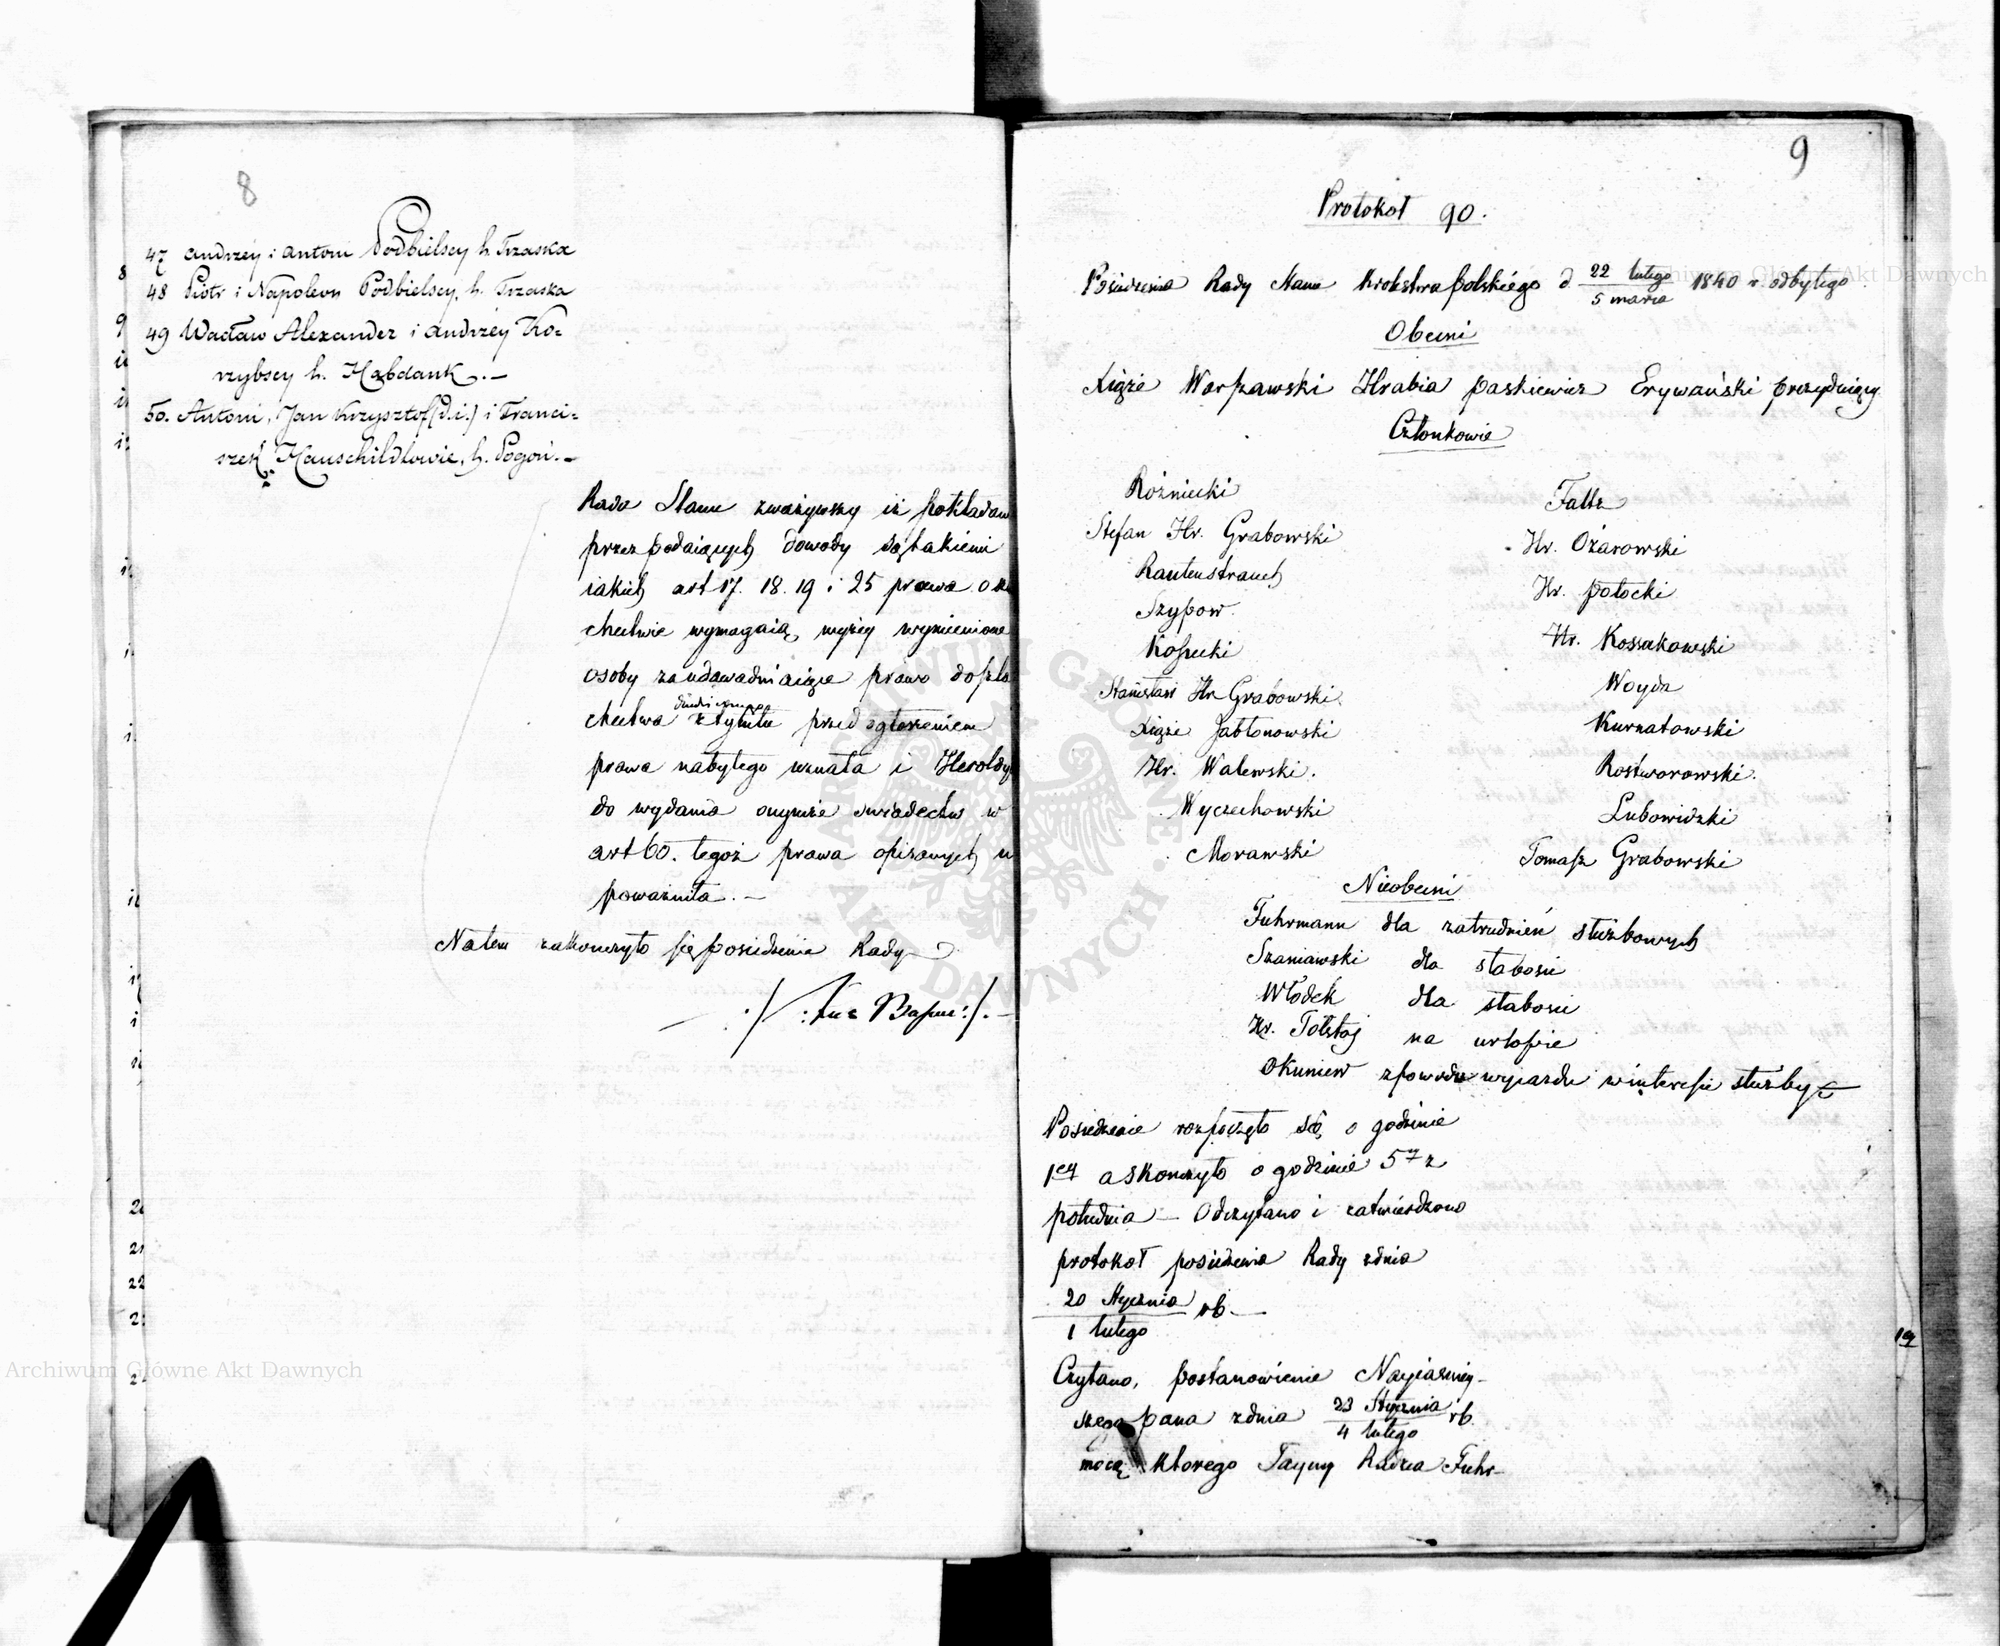 8
47 Andrzéy i Antoni Podbielscy h. Trzaska
48 Piotr i Napoleon Podbielscy, h. Trzaska
49 Wacław Alexander i Andrzéy Ko=
rzybscy h. Habdank.—
50. Antoni, Jan Krzysztof (d.i.) i Franci=
szek Hauschildtowie, h. Pogoń.—
Rada Stanu zważywszy iż pokładane
przez podaiących dowody są takiemi
iakich art 17. 18. 19 i 25 prawa o szla
chectwie wymagaią, wyżey wymienione
osoby za udowadniaiące prawo do szla
chectwa z tytułu przed ogłoszeniem
prawa nabytego uznała i Heroldyę
do wydania onymże świadectw w
art 60. tegoż prawa opisanych u
poważniła.—
Na tem zakończyło się posiedzenie Rady
9
Protokół 90.
Posiedzenia Rady Stanu Królestwa Polskiégo d 22 lutego / 5 marca 1840 r. odbytego
Obecni
Xiąże Warszawski Hrabia Paskiewicz Erywański prezyduiący
Członkowie
Rożniecki
Faltz
Stefan Hr. Grabowski
Hr. Ożarowski
Rautenstrauch
Hr. Potocki
Szypow.
Kosecki
Hr. Kossakowski
Stanisław Hr Grabowski
Woyda
Xiąże Jabłonowski
Kurnatowski
Hr. Walewski.
Rostworowski.
Wyczechowski
Lubowidzki
Morawski
Tomasz Grabowski
Nieobecni
Fuhrmann dla zatrudnień służbowych
Szaniawski dla słabości
Włodek dla słabości
Hr. Tołstoj na urlopie
Okuniew z powodu wyiazdu w interesie służby
Posiedzenie rozpoczęło się o godzinie
1ey a skończyło o godzinie 5ey z
południa — Odczytano i zatwierdzono
protokół posiedzenia Rady z dnia
20 Stycznia / 1 lutego rb.—
Czytano, postanowienie Nayiaśniey-
szego Pana z dnia 23 Stycznia / 4 lutego rb.
mocą którego Tayny Radca Fuhr-
Archiwum Główne Akt Dawnych
Archiwum Główne Akt Dawnych
ARCHIWUM GŁÓWNE AKT DAWNYCH